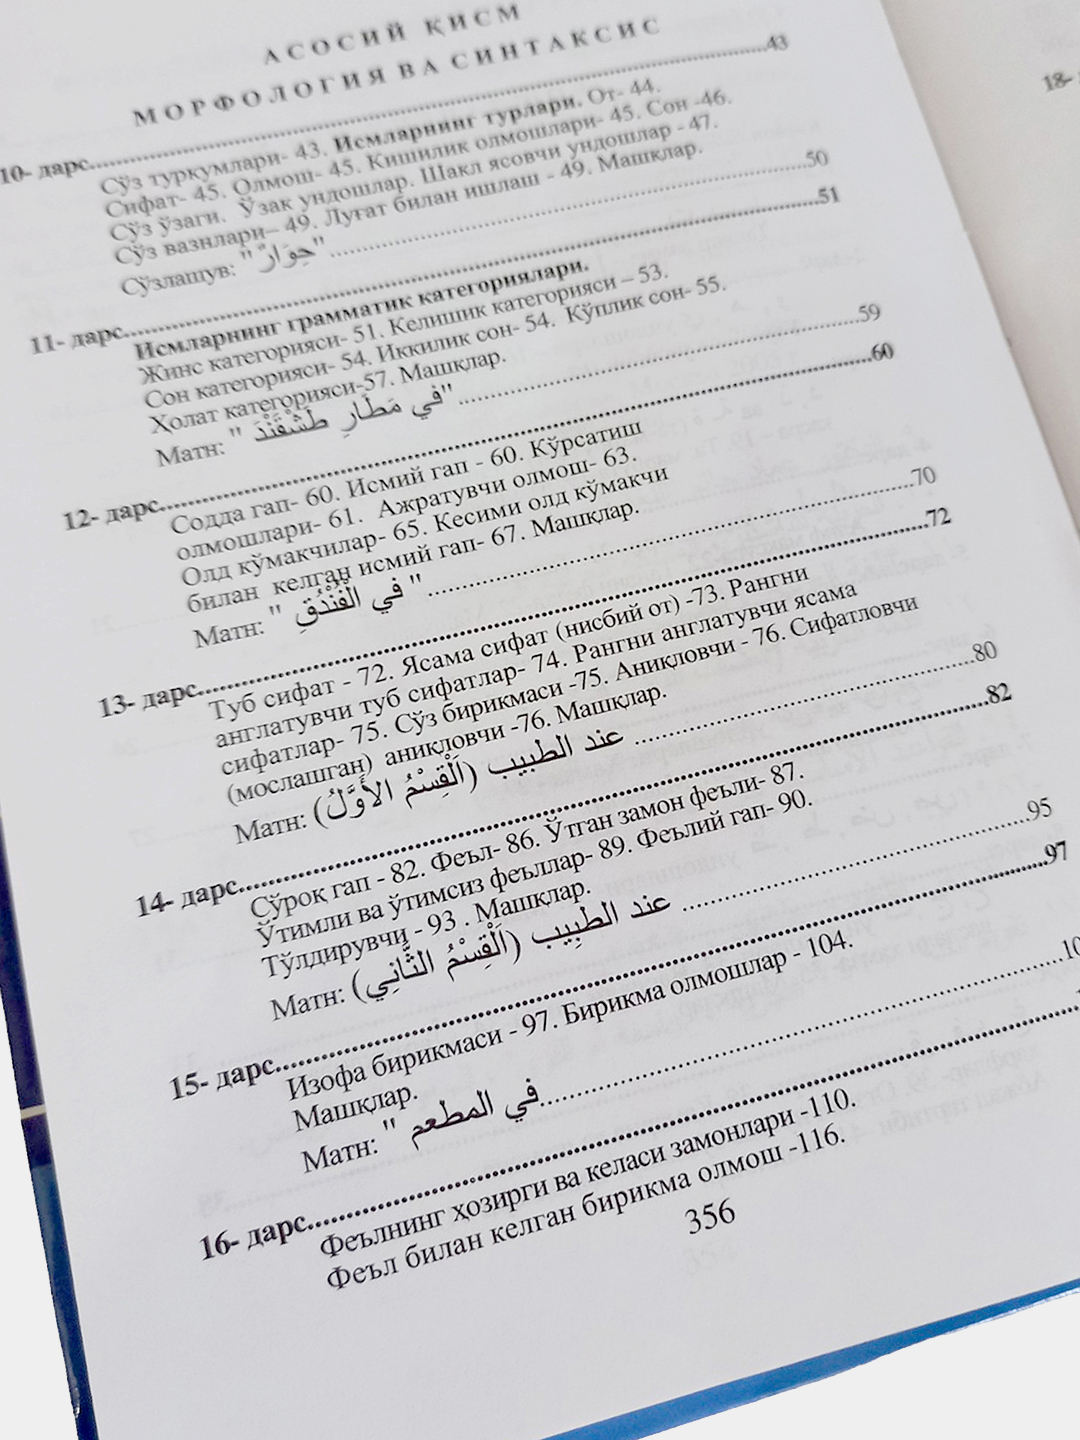 АСОСИЙ ҚИСМ
МОРФОЛОГИЯ ВА СИНТАКСИС
10- дарс..........43
Сўз туркумлари- 43. Исмларнинг турлари. От- 44.
Сифат- 45. Олмош- 45. Кишилик олмошлари- 45. Сон -46.
Сўз ўзаги. Ўзак ундошлар. Шакл ясовчи ундошлар - 47.
Сўз вазнлари– 49. Луғат билан ишлаш - 49. Машқлар.
Сўзлашув: "حِوَارٌ" ..........50
11- дарс..........51
Исмларнинг грамматик категориялари.
Жинс категорияси- 51. Келишик категорияси – 53.
Сон категорияси- 54. Иккилик сон- 54. Кўплик сон- 55.
Ҳолат категорияси-57. Машқлар.
Матн: "في مَطَارِ طَشْقَنْدَ" ..........59
12- дарс..........60
Содда гап- 60. Исмий гап - 60. Кўрсатиш
олмошлари- 61. Ажратувчи олмош- 63.
Олд кўмакчилар- 65. Кесими олд кўмакчи
билан келган исмий гап- 67. Машқлар.
Матн: " في الْفُنْدُقِ " ..........70
13- дарс..........72
Туб сифат - 72. Ясама сифат (нисбий от) -73. Рангни
англатувчи туб сифатлар- 74. Рангни англатувчи ясама
сифатлар- 75. Сўз бирикмаси -75. Аниқловчи - 76. Сифатловчи
(мослашган) аниқловчи -76. Машқлар.
Матн: عند الطبيب (اَلْقِسْمُ الأَوَّلُ) ..........80
14- дарс..........82
Сўроқ гап - 82. Феъл- 86. Ўтган замон феъли- 87.
Ўтимли ва ўтимсиз феъллар- 89. Феълий гап- 90.
Тўлдирувчи - 93 . Машқлар.
Матн: عند الطبِيب (اَلْقِسْمُ الثَّانِي) ..........95
15- дарс..........97
Изофа бирикмаси - 97. Бирикма олмошлар - 104.
Машқлар.
Матн: " في المطعم..........10
16- дарс..........
Феълнинг ҳозирги ва келаси замонлари -110.
Феъл билан келган бирикма олмош -116.
356
18-